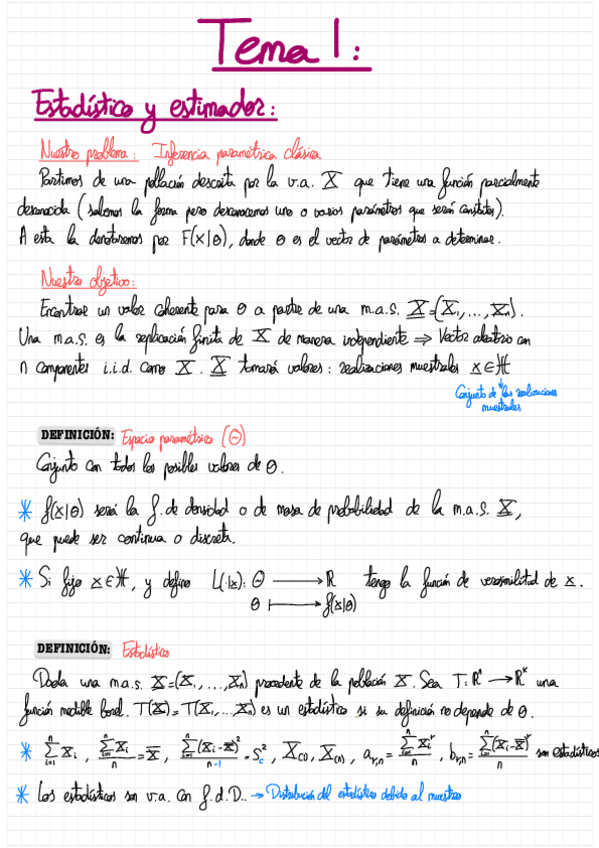 Tema 1:
Estadístico y estimador:
Nuestro problema: Inferencia paramétrica clásica
Partimos de una población descrita por la v.a. X que tiene una función parcialmente
desconocida (sabemos la forma pero desconocemos uno o varios parámetros que serán constantes).
A esta la denotaremos por F(x|θ), donde θ es el vector de parámetros a determinar.
Nuestro objetivo:
Encontrar un valor coherente para θ a partir de una m.a.s. X=(X₁,...,Xₙ).
Una m.a.s. es la replicación finita de X de manera independiente ⇒ Vector aleatorio con
n componentes i.i.d. como X. X tomará valores: realizaciones muestrales x∈ℋ
Conjunto de las realizaciones
muestrales
DEFINICIÓN: Espacio paramétrico (Θ)
Conjunto con todos los posibles valores de θ.
* f(x|θ) será la f. de densidad o de masa de probabilidad de la m.a.s. X,
que puede ser continua o discreta.
* Si fijo x∈ℋ, y defino L(·|x): Θ → ℝ tengo la función de verosimilitud de x.
θ ↦ f(x|θ)
DEFINICIÓN: Estadístico
Dada una m.a.s. X=(X₁,...,Xₙ) procedente de la población X. Sea T: ℝⁿ → ℝᵏ una
función medible Borel. T(X)=T(X₁,...,Xₙ) es un estadístico si su definición no depende de θ.
* Σⁿᵢ₌₁ Xᵢ, Σⁿᵢ₌₁ Xᵢ / n = X̄, Σⁿᵢ₌₁ (Xᵢ-X̄)² / n-1 = S²c, X₍₁₎, X₍ₙ₎, aᵣ,ₙ = Σⁿᵢ₌₁ Xᵢʳ / n, bᵣ,ₙ = Σⁿᵢ₌₁ (Xᵢ-X̄)ʳ / n son estadísticos
* Los estadísticos son v.a. con f.d.D.. → Distribución del estadístico debido al muestreo